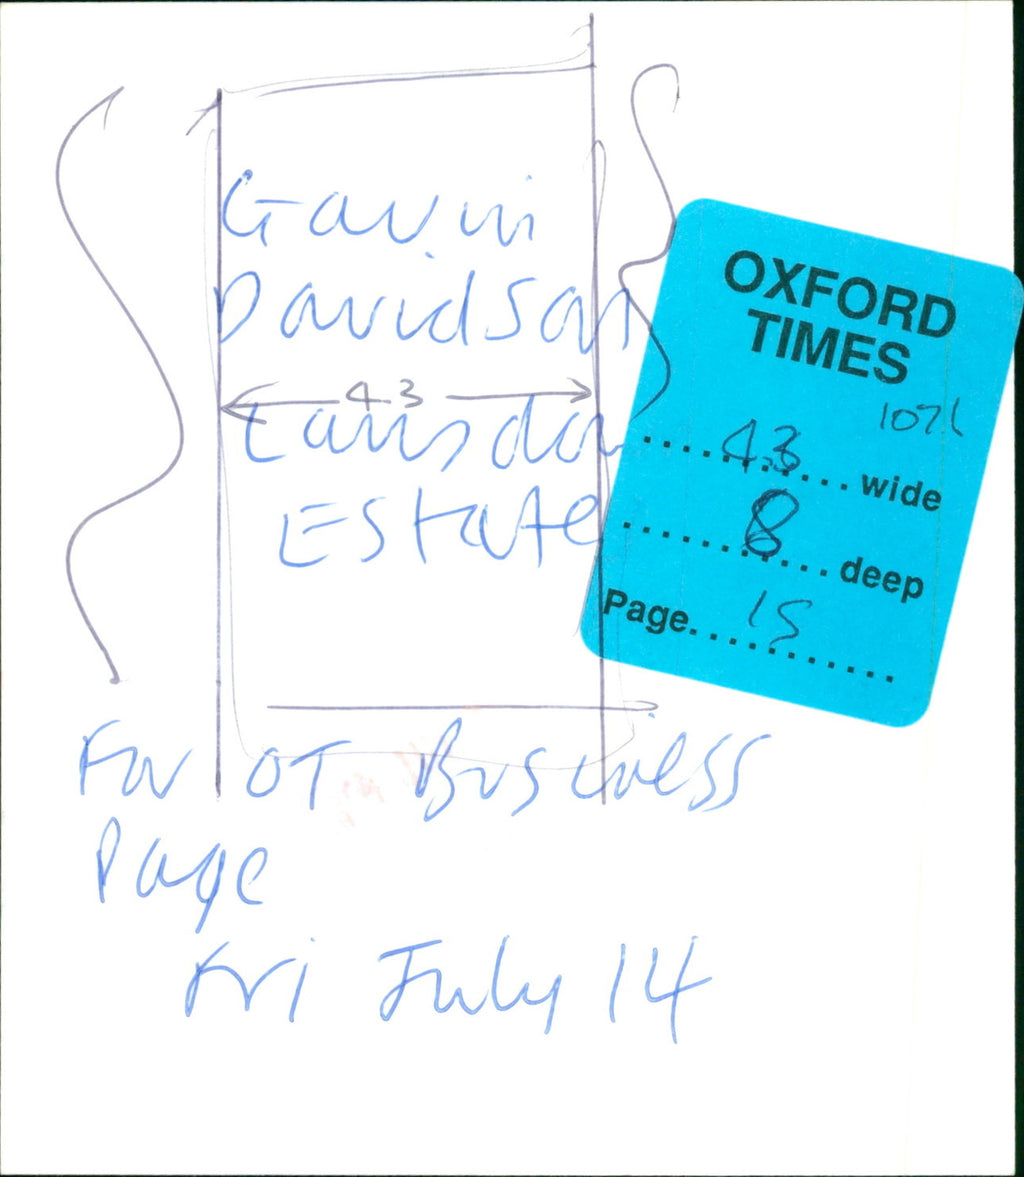 Gavin
Davidson
4.3
Estate
For OT Business
Page
Fri July 14
OXFORD
TIMES
4.3 wide
8 deep
Page 15